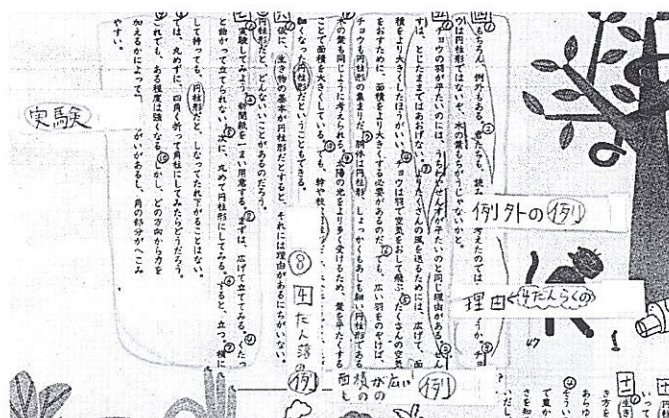 もちろん、例外もある。
ウは円柱形ではないぞ、木の葉もちがうじゃないかと。
チョウの羽が平たいのには、うちわやせんすが平たいのと同じ理由がある。せん
すは、とじたままではあおげない。よりたくさんの風を送るためには、広げて、面
積をより大きくしたほうがいい。チョウは羽で空気をおして飛ぶ。たくさんの空気
をおすために、面積をより大きくする必要があるのだ。でも、広い羽をのぞけば、
チョウも円柱形の集まりだ。胴体は円柱形、しょっかくもあしも細い円柱形である
木の葉も同じように考えられる。太陽の光をより多く受けるため、葉を平たくする
ことで面積を大きくしている。でも、幹や枝
細くなった円柱形だということもできる。
仮に、生き物の基本が円柱形だとすると、それには理由があるにちがいない。
円柱形だと、どんないいことがあるのだろう。
実験してみよう。新聞紙を一まい用意する。まずは、広げて立ててみる。くたっ
と曲がって立てられない。次に、丸めて円柱形にしてみる。すると、立つ。横に
して持っても、円柱形だと、しなってたれ下がることはない。
では、丸めずに、四角く折って角柱にしてみたらどうだろう。
これでも、ある程度は強くなる。しかし、どの方向から力を
加えるかによって
がいがあるし、角の部分がへこみ
やすい。
実験
例外の例
理由←4だんらくの
⑧
4だん落の
例
面積が広い
例